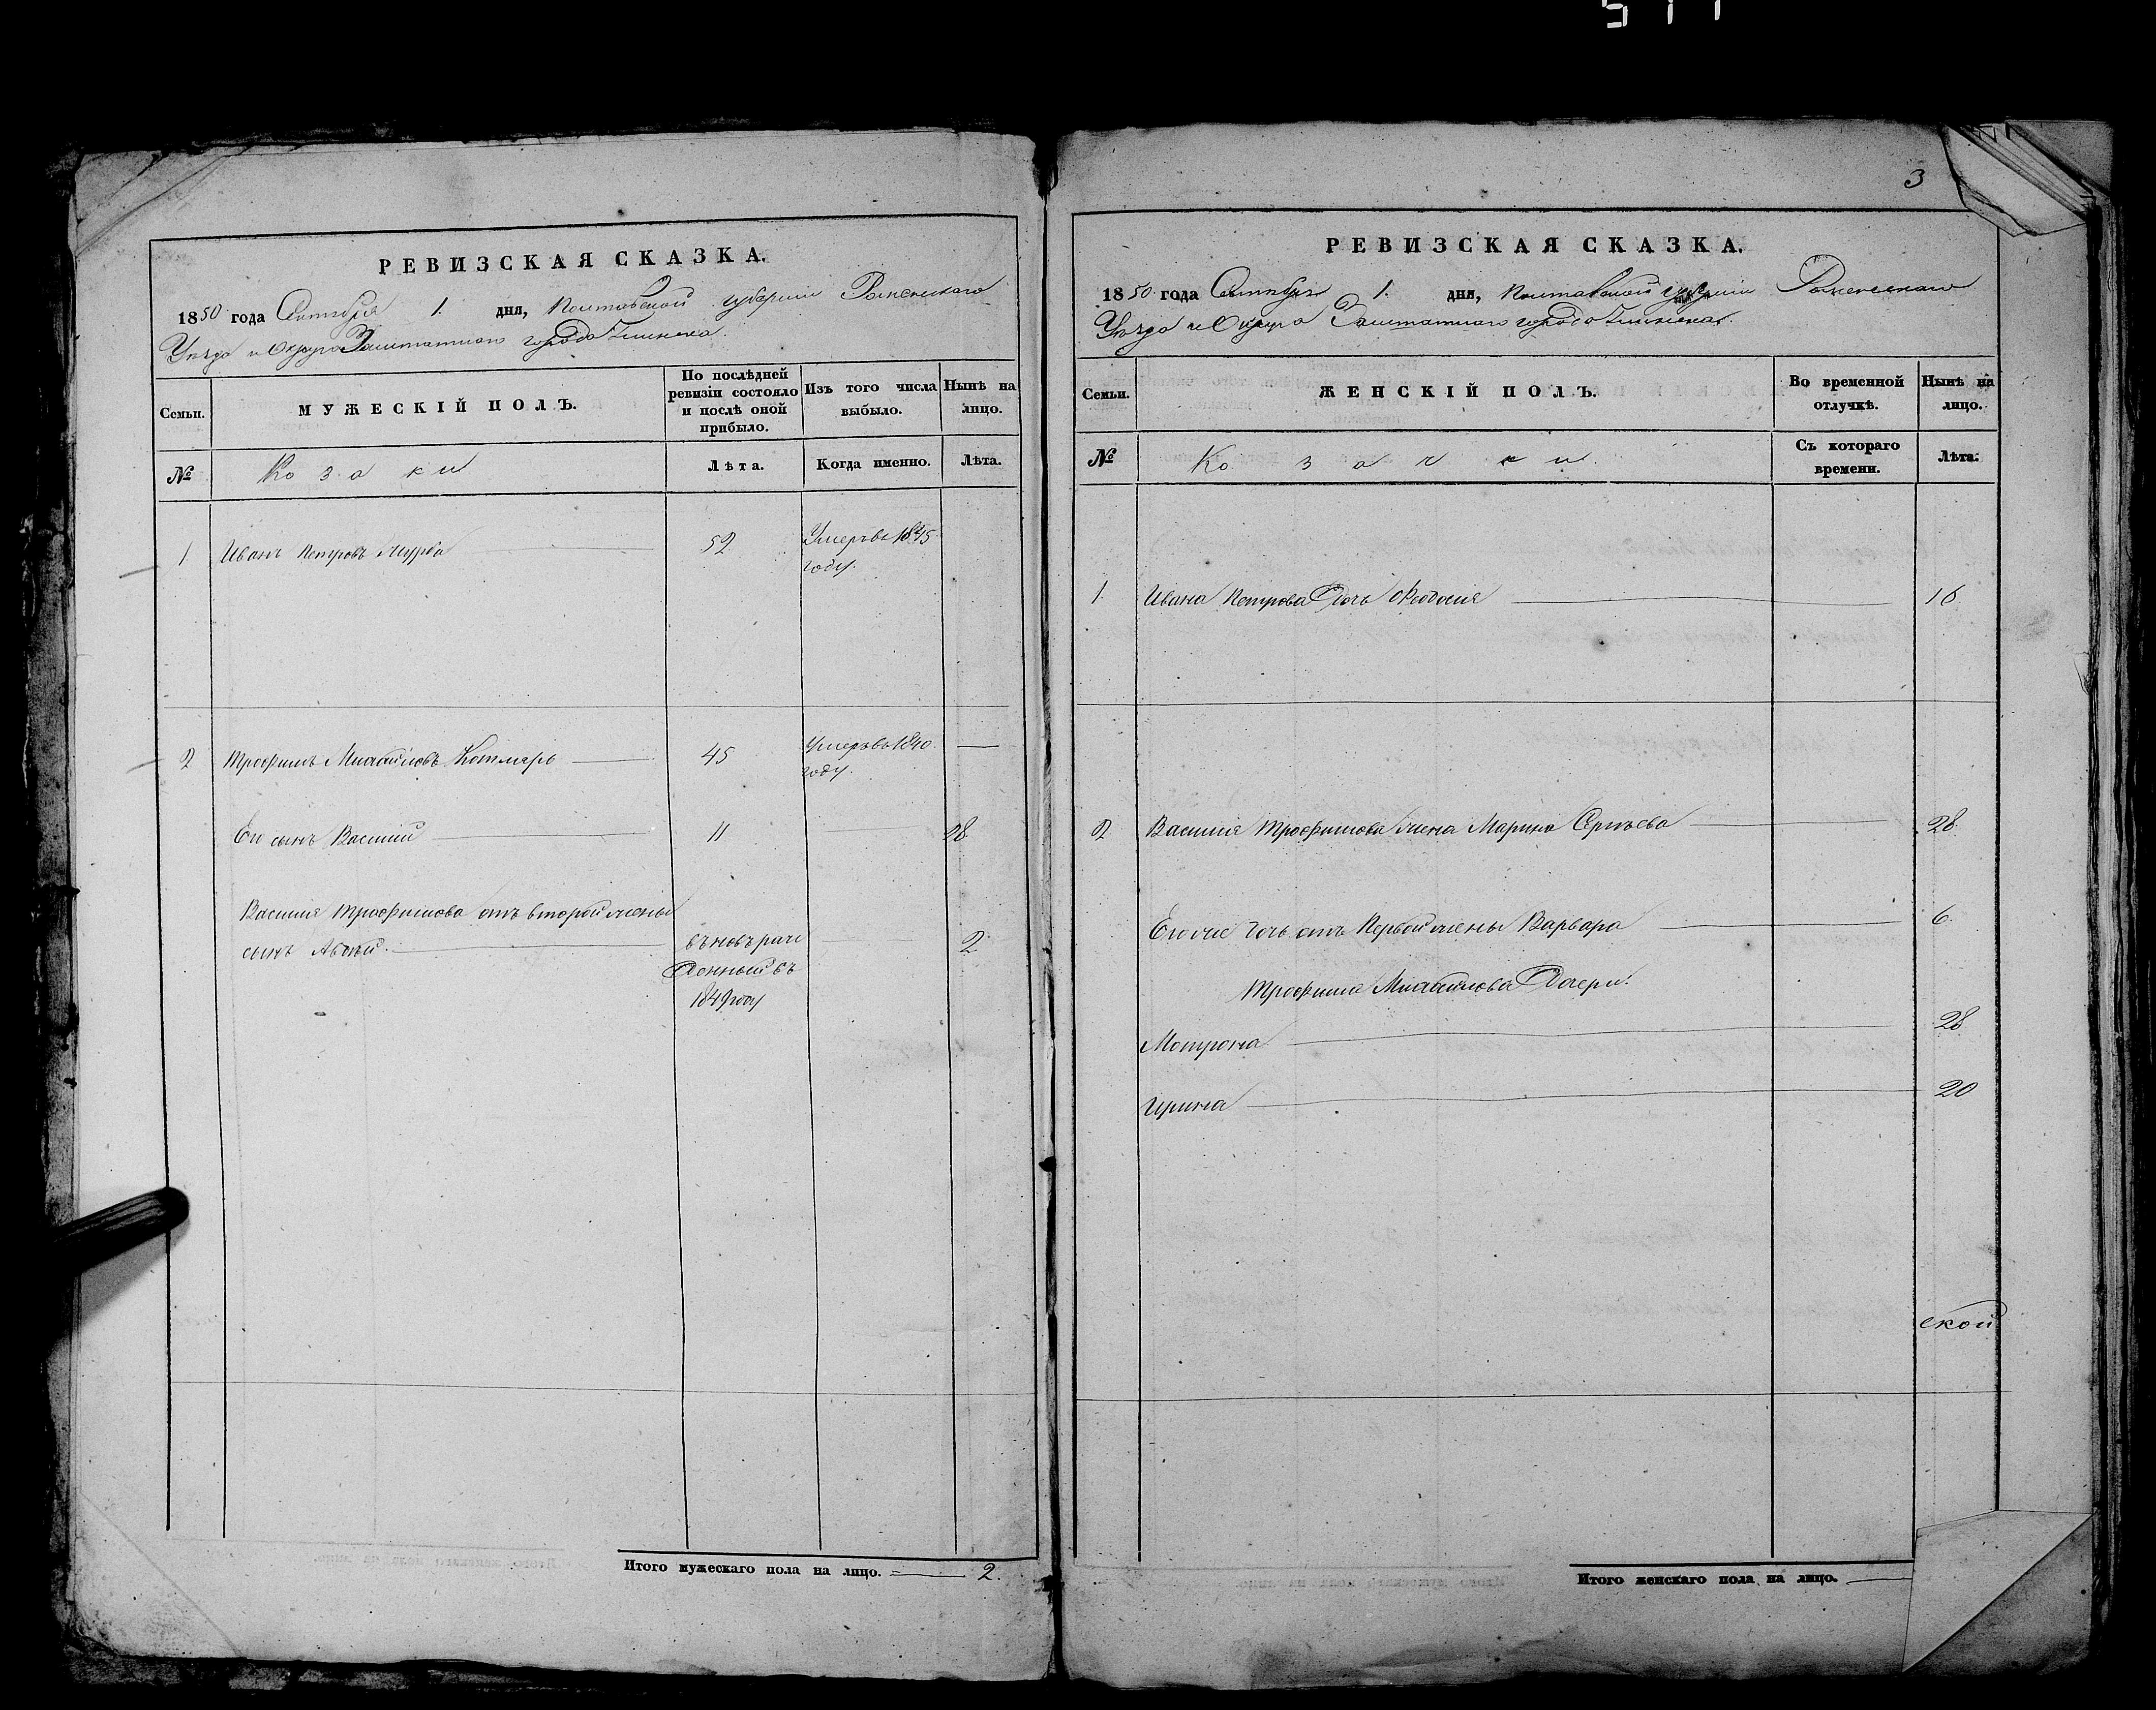 511
РЕВИЗСКАЯ СКАЗКА.
1850 года Октября 1. дня, Полтавской губернии Роменскаго
Уѣзда и Округа Заштатнаго города Глинска.
Семьи.
МУЖЕСКІЙ ПОЛЪ.
По послѣдней ревизіи состояло и послѣ оной прибыло.
Изъ того числа выбыло.
Нынѣ на лицо.
№
Козаки
Лѣта.
Когда именно.
Лѣта.
1 Иванъ Петровъ 52 Умеръ въ 1845
году.
2 Трофимъ Михайловъ Котляръ 45 Умеръ въ 1840
году.
Его сынъ Василий 11 28
Василия Трофимова отъ второй жены
сынъ 2
въ новь рож
денный въ
1849 году
Итого мужескаго пола на лицо. 2.
3
РЕВИЗСКАЯ СКАЗКА.
1850 года Октября 1. дня, Полтавской губернии Роменскаго
Уѣзда и Округа Заштатнаго города Глинска.
Семьи.
ЖЕНСКІЙ ПОЛЪ.
Во временной отлучкѣ.
Нынѣ на лицо.
№
Козачки
Съ котораго времени.
Лѣта.
1. Ивана Петрова дочь Феодосия 16
2 Василия Трофимова жена Марина 28.
Его же дочь отъ первой жены Варвара 6.
Трофима Михайлова дочери:
Мотрона 28
Ирина 20
ской
Итого женскаго пола на лицо.